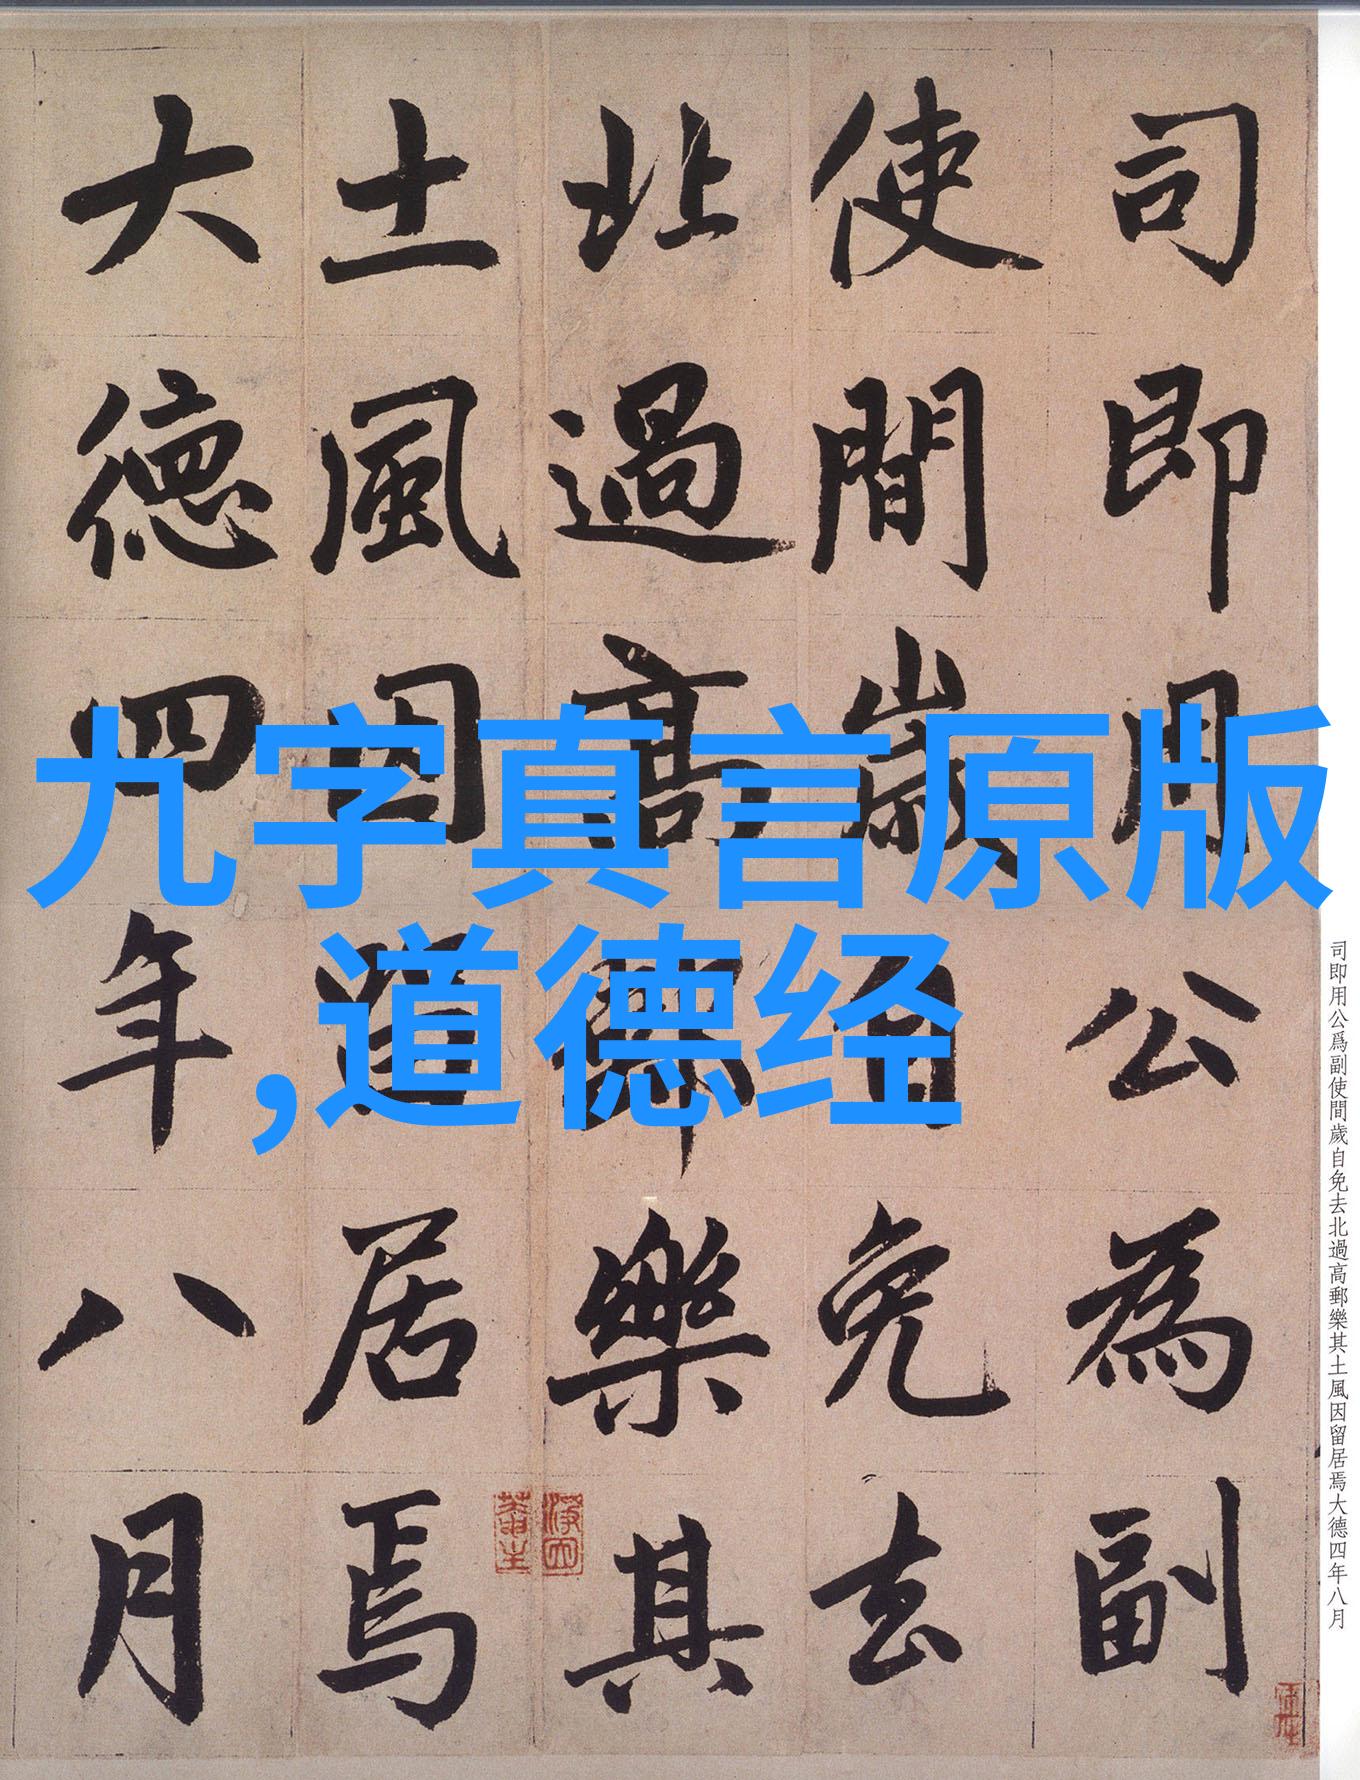 司即用公為副
使間歲自免去
北過高郵樂其
土風因留居焉
大德四年八月
九字真言原版
,道德经
司即用公爲副使間歲自免去北過高郵樂其土風因留居焉大德四年八月